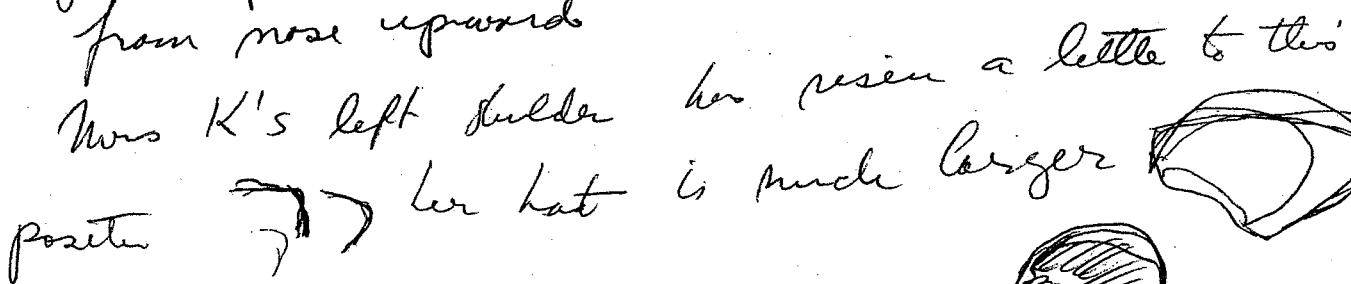 from nose upward
Mrs K's left shulder has risen a little to this
position her hat is much larger